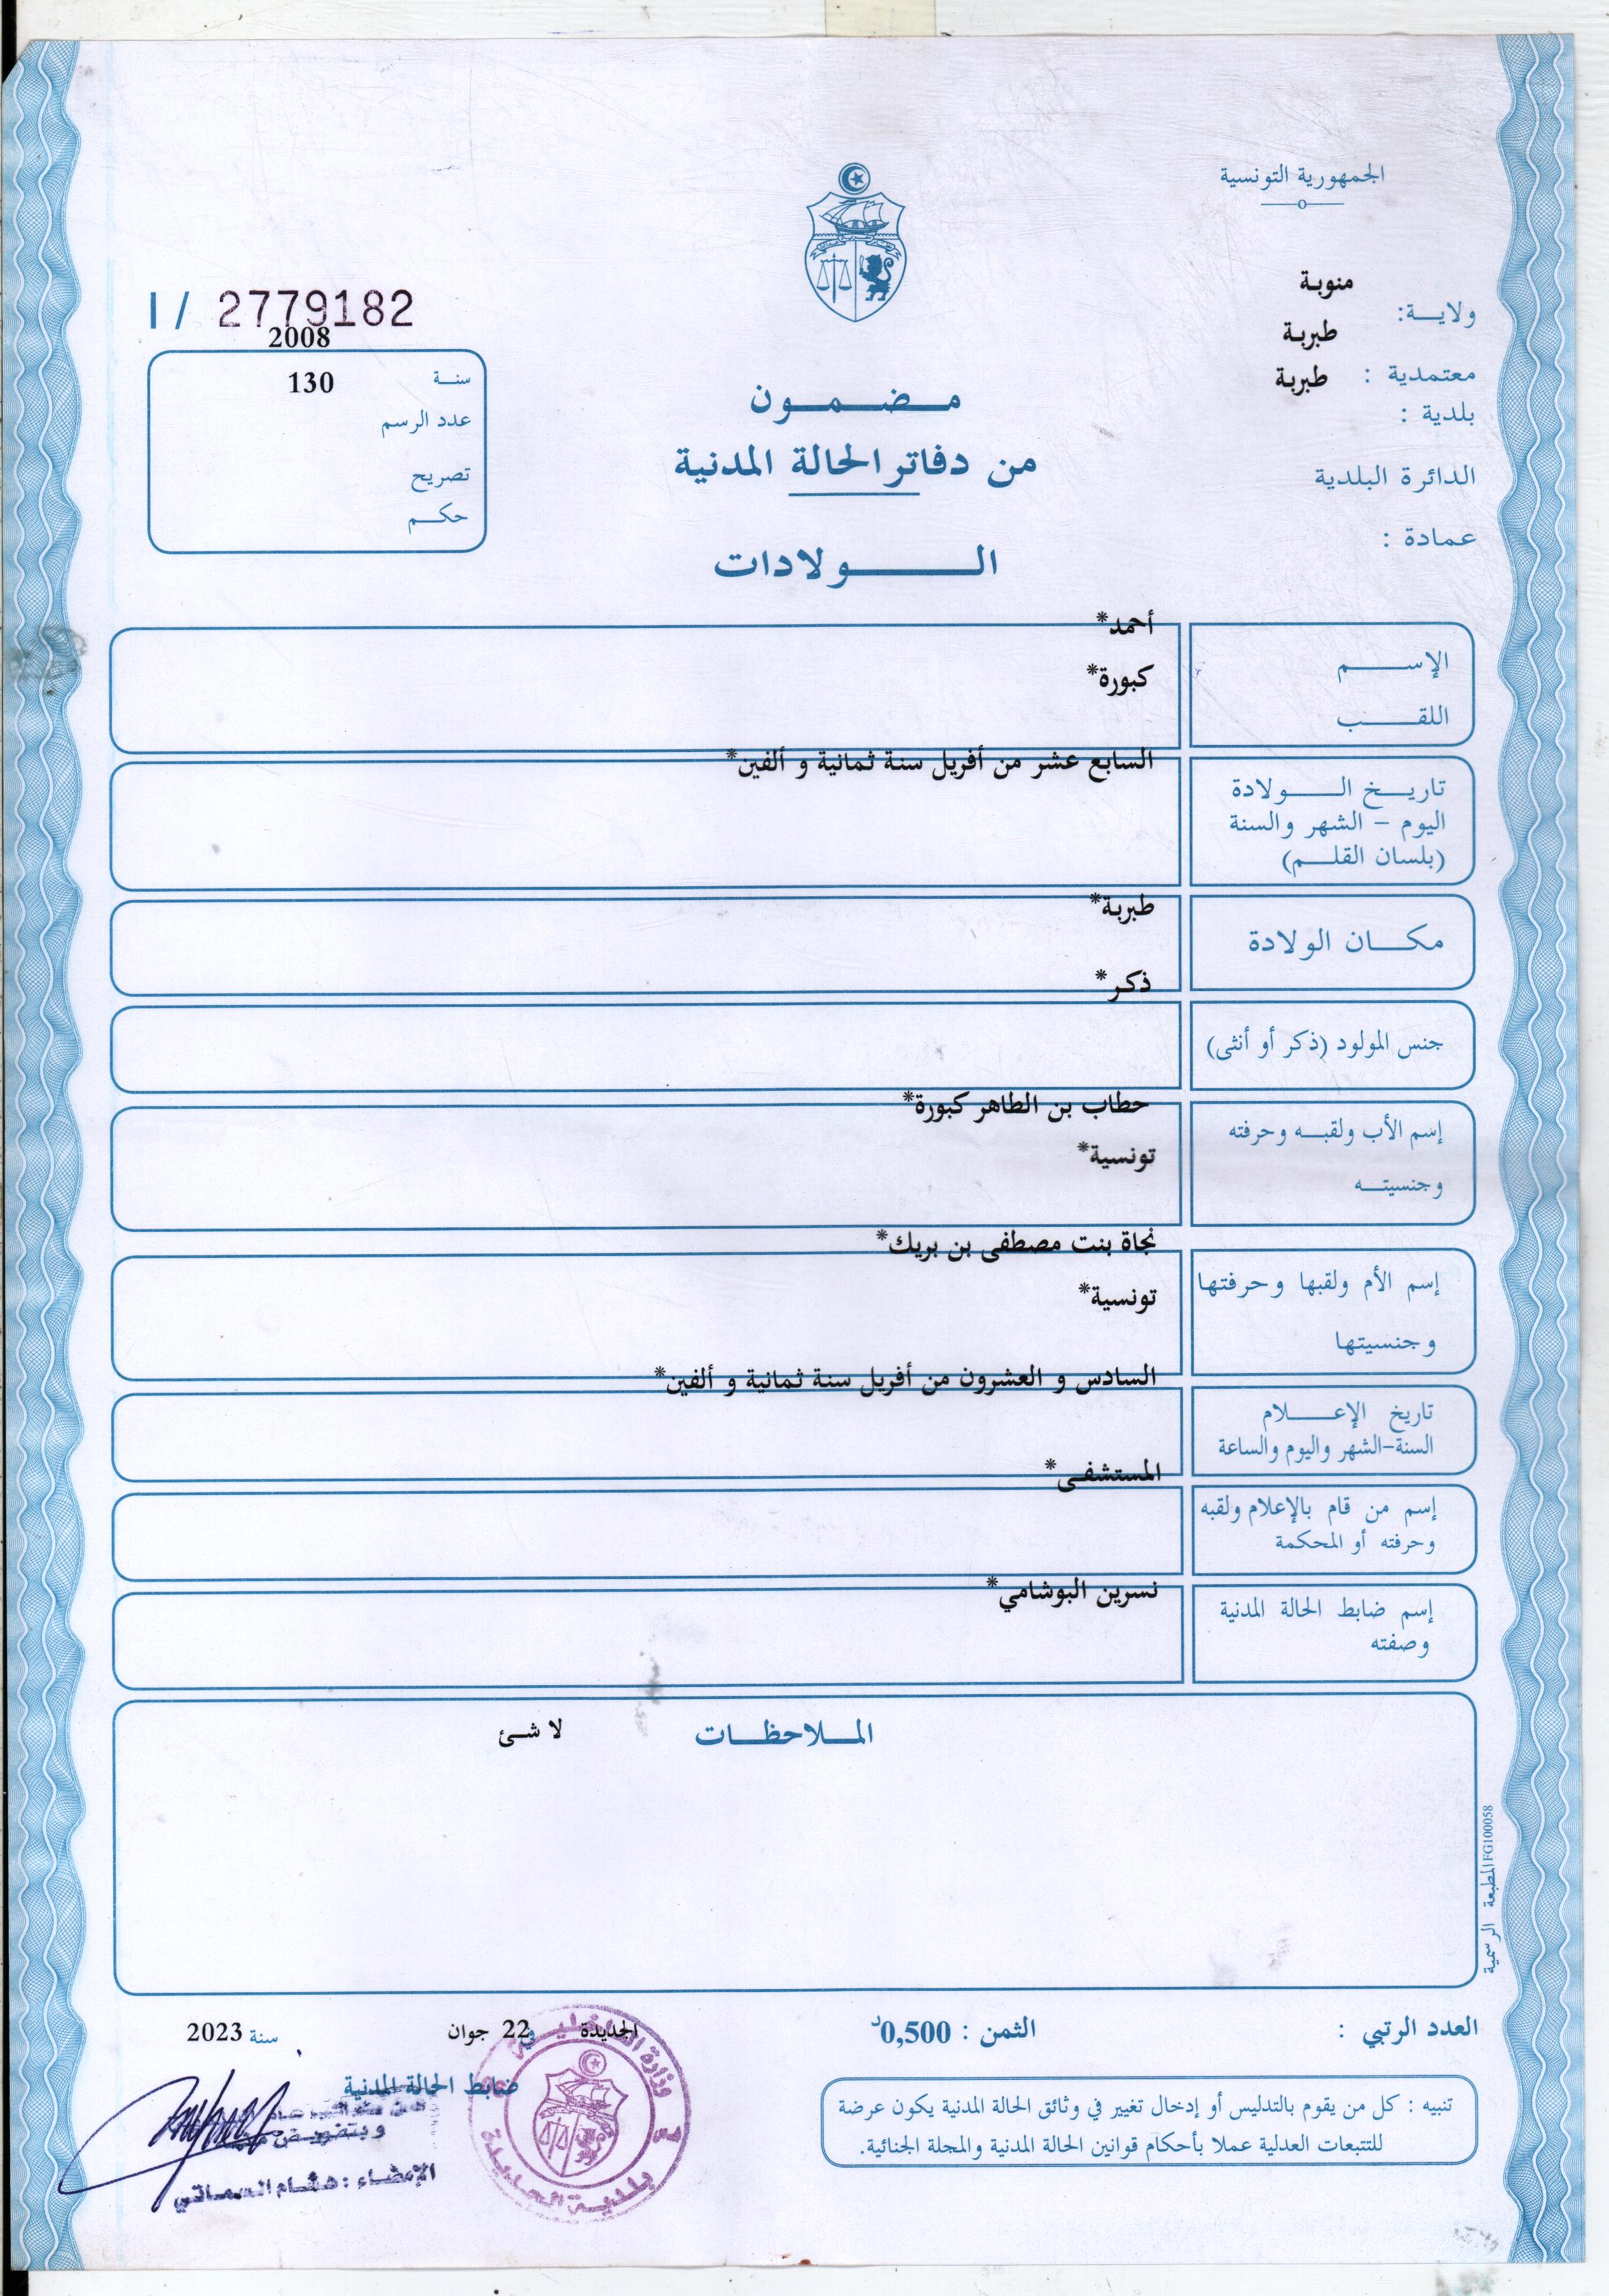 الجمهورية التونسية
منوبة
ولايـــة:
طبربة
معتمدية :
طبربة
بلدية :
الدائرة البلدية
عمادة :
I / 2779182
2008
سنـــة
130
عدد الرسم
تصريح
حكـــم
مـــضـــمـــون
من دفاتر الحالة المدنية
الـــــولادات
أحمد*
الإســـــم
كبورة*
اللقـــــب
السابع عشر من أفريل سنة ثمانية و ألفين*
تاريـــخ الـــــولادة
اليوم - الشهر والسنة
(بلسان القلـــم)
طبربة*
مكـــان الولادة
ذكر*
جنس المولود (ذكر أو أنثى)
حطاب بن الطاهر كبورة*
إسم الأب ولقبـــه وحرفته
تونسية*
وجنسيتـــه
نجاة بنت مصطفى بن بريك*
إسم الأم ولقبها وحرفتها
تونسية*
وجنسيتها
السادس و العشرون من أفريل سنة ثمانية و ألفين*
تاريخ الإعـــــلام
السنة-الشهر واليوم والساعة
المستشفى*
إسم من قام بالإعلام ولقبه
وحرفته أو المحكمة
نسرين البوشامي*
إسم ضابط الحالة المدنية
وصفته
المـــلاحظـــات
لا شئ
المطبعة الرسمية FG100058
العدد الرتبي :
الثمن : 0,500د
الجديدة في 22 جوان سنة 2023
ضابط الحالة المدنية
وبتفويض منه
الإمضاء : هشام
وزارة الداخلية
بلدية الجديدة
تنبيه : كل من يقوم بالتدليس أو إدخال تغيير في وثائق الحالة المدنية يكون عرضة
للتتبعات العدلية عملا بأحكام قوانين الحالة المدنية والمجلة الجنائية.